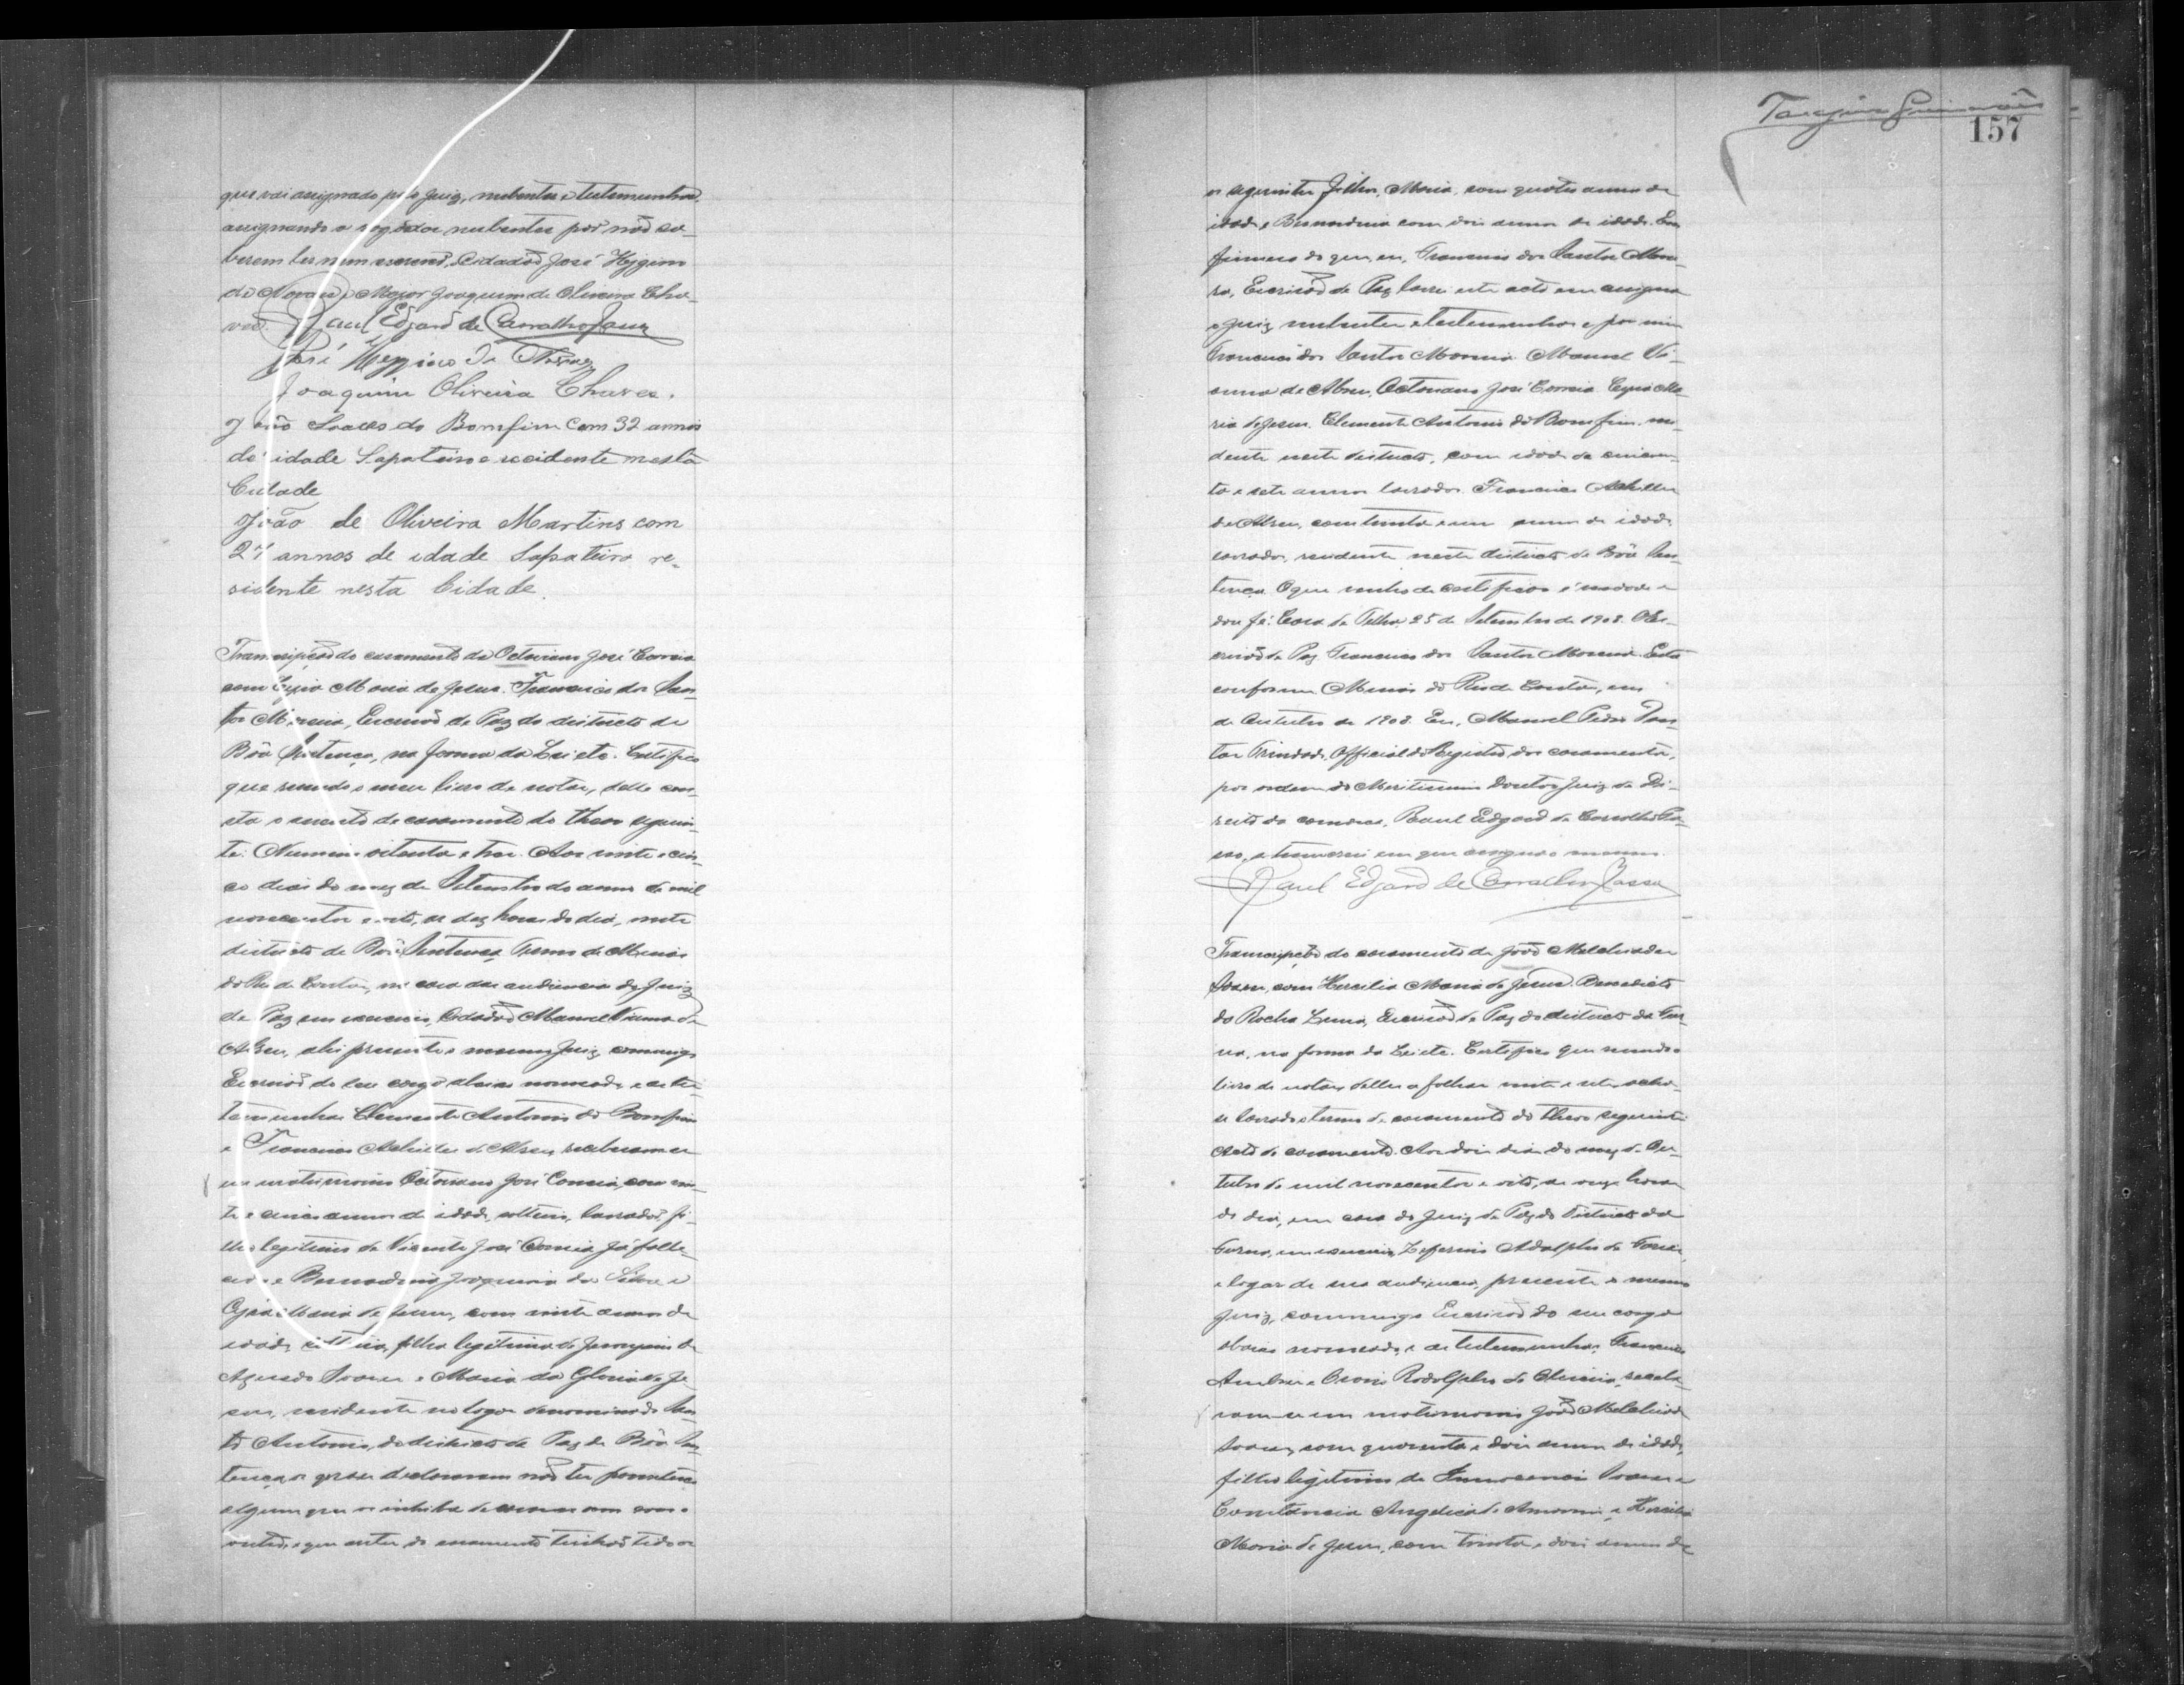 que vai assignado pelo Juiz, nubentes e testemunhas,
assignando a rogo dos nubentes por não sa-
berem ler nem escrever, Cidadão José Hygino
de Novaes e Major Joaquim de Oliveira Cha-
ves. Raul Edgard de Carvalho Passa
José Hyggino de Novaes
Joaquim Oliveira Chaves.
João Soares do Bomfim Com 32 annos
de idade Sapateiro e rezidente nesta
Cidade
João de Oliveira Martins com
27 annos de idade Sapateiro re-
sidente nesta Cidade.
Transcripção do casamento de Octaviano José Correia
com Maria de Jesus. Francisco dos San-
tos Moreira, Escrivão de Paz do districto de
Bôa Sentença, na forma da Lei etc. Certifico
que vendo o meu livro de notas, delle con-
sta o assento de casamento do theor seguin-
te: Numero oitenta e tres. Aos vinte e cin-
co dias do mez de Setembro do anno de mil
novecentos e oito, as dez horas do dia, neste
districto de Bôa Sentença, Termo de Minas
do Rio de Contas, na casa das audiencias do Juiz
de Paz em exercicio, Cidadão Manoel Vianna de
Abreu, ahi presente o mesmo Juiz, commigo
Escrivão do seu cargo abaixo nomeado e as tes-
temunhas Clemente Antonio do Bomfim
e Francisco Achilles de Abreu, receberam-se
em matrimonio Octaviano José Correia, com vin-
te e cinco annos de idade, solteiro, lavrador, fi-
lho legitimo de Vicente José Correia já falle-
cido e Bernardina Joaquina da Silva e
Maria de Jesus, com vinte annos de
idade, solteira, filha legitima de Jeronymo de
Azevedo Soares e Maria da Gloria de Je-
sus, residente no logar denominado San-
to Antonio, do districto de Paz de Bôa Sen-
tença, os quaes declararam não ter parentesco
algum que os inhiba de casar um com o
outro, e que antes do casamento tinhão tido os
Guimarães
157
os seguintes filhos, Maria, com quatro annos de
idade e Bernardina com dois annos de idade. Em
firmeza do que eu, Francisco dos Santos Morei-
ra, Escrivão de Paz lavrei este acto em assigna
o Juiz nubentes e testemunhas e por mim
Francisco dos Santos Moreira. Manoel Vi-
anna de Abreu, Octaviano José Correia. Ma-
ria de Jesus. Clemente Antonio do Bomfim, resi-
dente neste districto, com idade de cincoen-
ta e sete annos lavrador. Francisco Achilles
de Abreu, com trinta e um annos de idade,
lavrador, residente neste districto de Bôa Sen-
tença. O que venho de certificar é verdade e
dou fé. Casa de Telha, 25 de Setembro de 1908. O Es-
crivão de Paz Francisco dos Santos Moreira. Está
conforme. Minas do Rio de Contas, em
de Outubro de 1908. Eu, Manoel Pedro dos San-
tos Trindade, Official do Registro dos casamentos,
por ordem do Meritissimo Doutor Juiz de Di-
reito da comarca, Raul Edgard de Carvalho Pa-
ssa, o transcrevi em que assigna o mesmo.
Raul Edgard de Carvalho Passa
Transcripção do casamento de João Melchiades
Soares, com Hercilia Maria de Jesus. Benedicto
da Rocha Lima, Escrivão de Paz do districto da Fur-
na, na forma da Lei etc. Certifico que vendo o
livro de notas delle a folhas vinte e sete acha-
se lavrado o termo de casamento do theor seguinte:
Acto de casamento. Aos dois dias do mez de Ou-
tubro de mil novecentos e oito, as onze horas
do dia, em casa do Juiz de Paz do Districto da
Furna, em exercicio, Zeferino Adolpho de
e logar de sua audiencia, presente o mesmo
Juiz, commigo Escrivão do seu cargo
abaixo nomeado, e as testemunhas, Francisco
e Rodolpho de Oliveira, recebe-
ram-se em matrimonio João Melchiades
Soares, com quarenta e dois annos de idade,
filho legitimo de Innocencio Soares e
Constancia Angelica de Amorim, e Hercilia
Maria de Jesus, com trinta e dois annos de